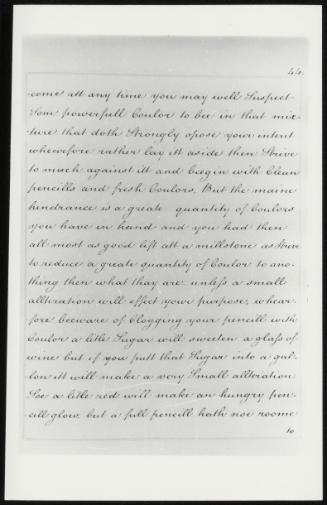 44.
come att any time you may well Suspect
Som powerfull Coulor to be in that mix-
ture that doth Strongly opose your intent
wheerefore rather lay itt aside then Strive
to much against itt and begin with Clean
pencills and fresh Coulors. But the maine
hindrance is a greate quantity of Coulors
you have in hand and you had then
all most as good lift att a millstone as Strive
to reduce a greate quantity of Coulor to ano-
thing then what thay are unless a small
allteration will effect your purpose, whear-
fore beeware of Clogging your pencill with
Coulor a litle Sugar will sweeten a glass of
wine but if you putt that Sugar into a gal-
lon itt will make a very Small allteration
Soe a litle red will make an hungry pen-
cill glow, but a full pencill hath noe roome
to